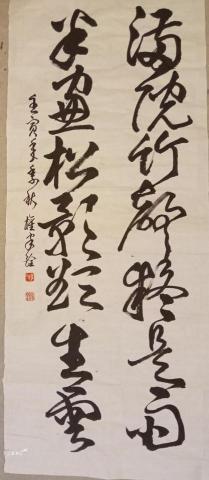 满院竹声疑是雨
半窗松影欲生云
壬寅年季秋